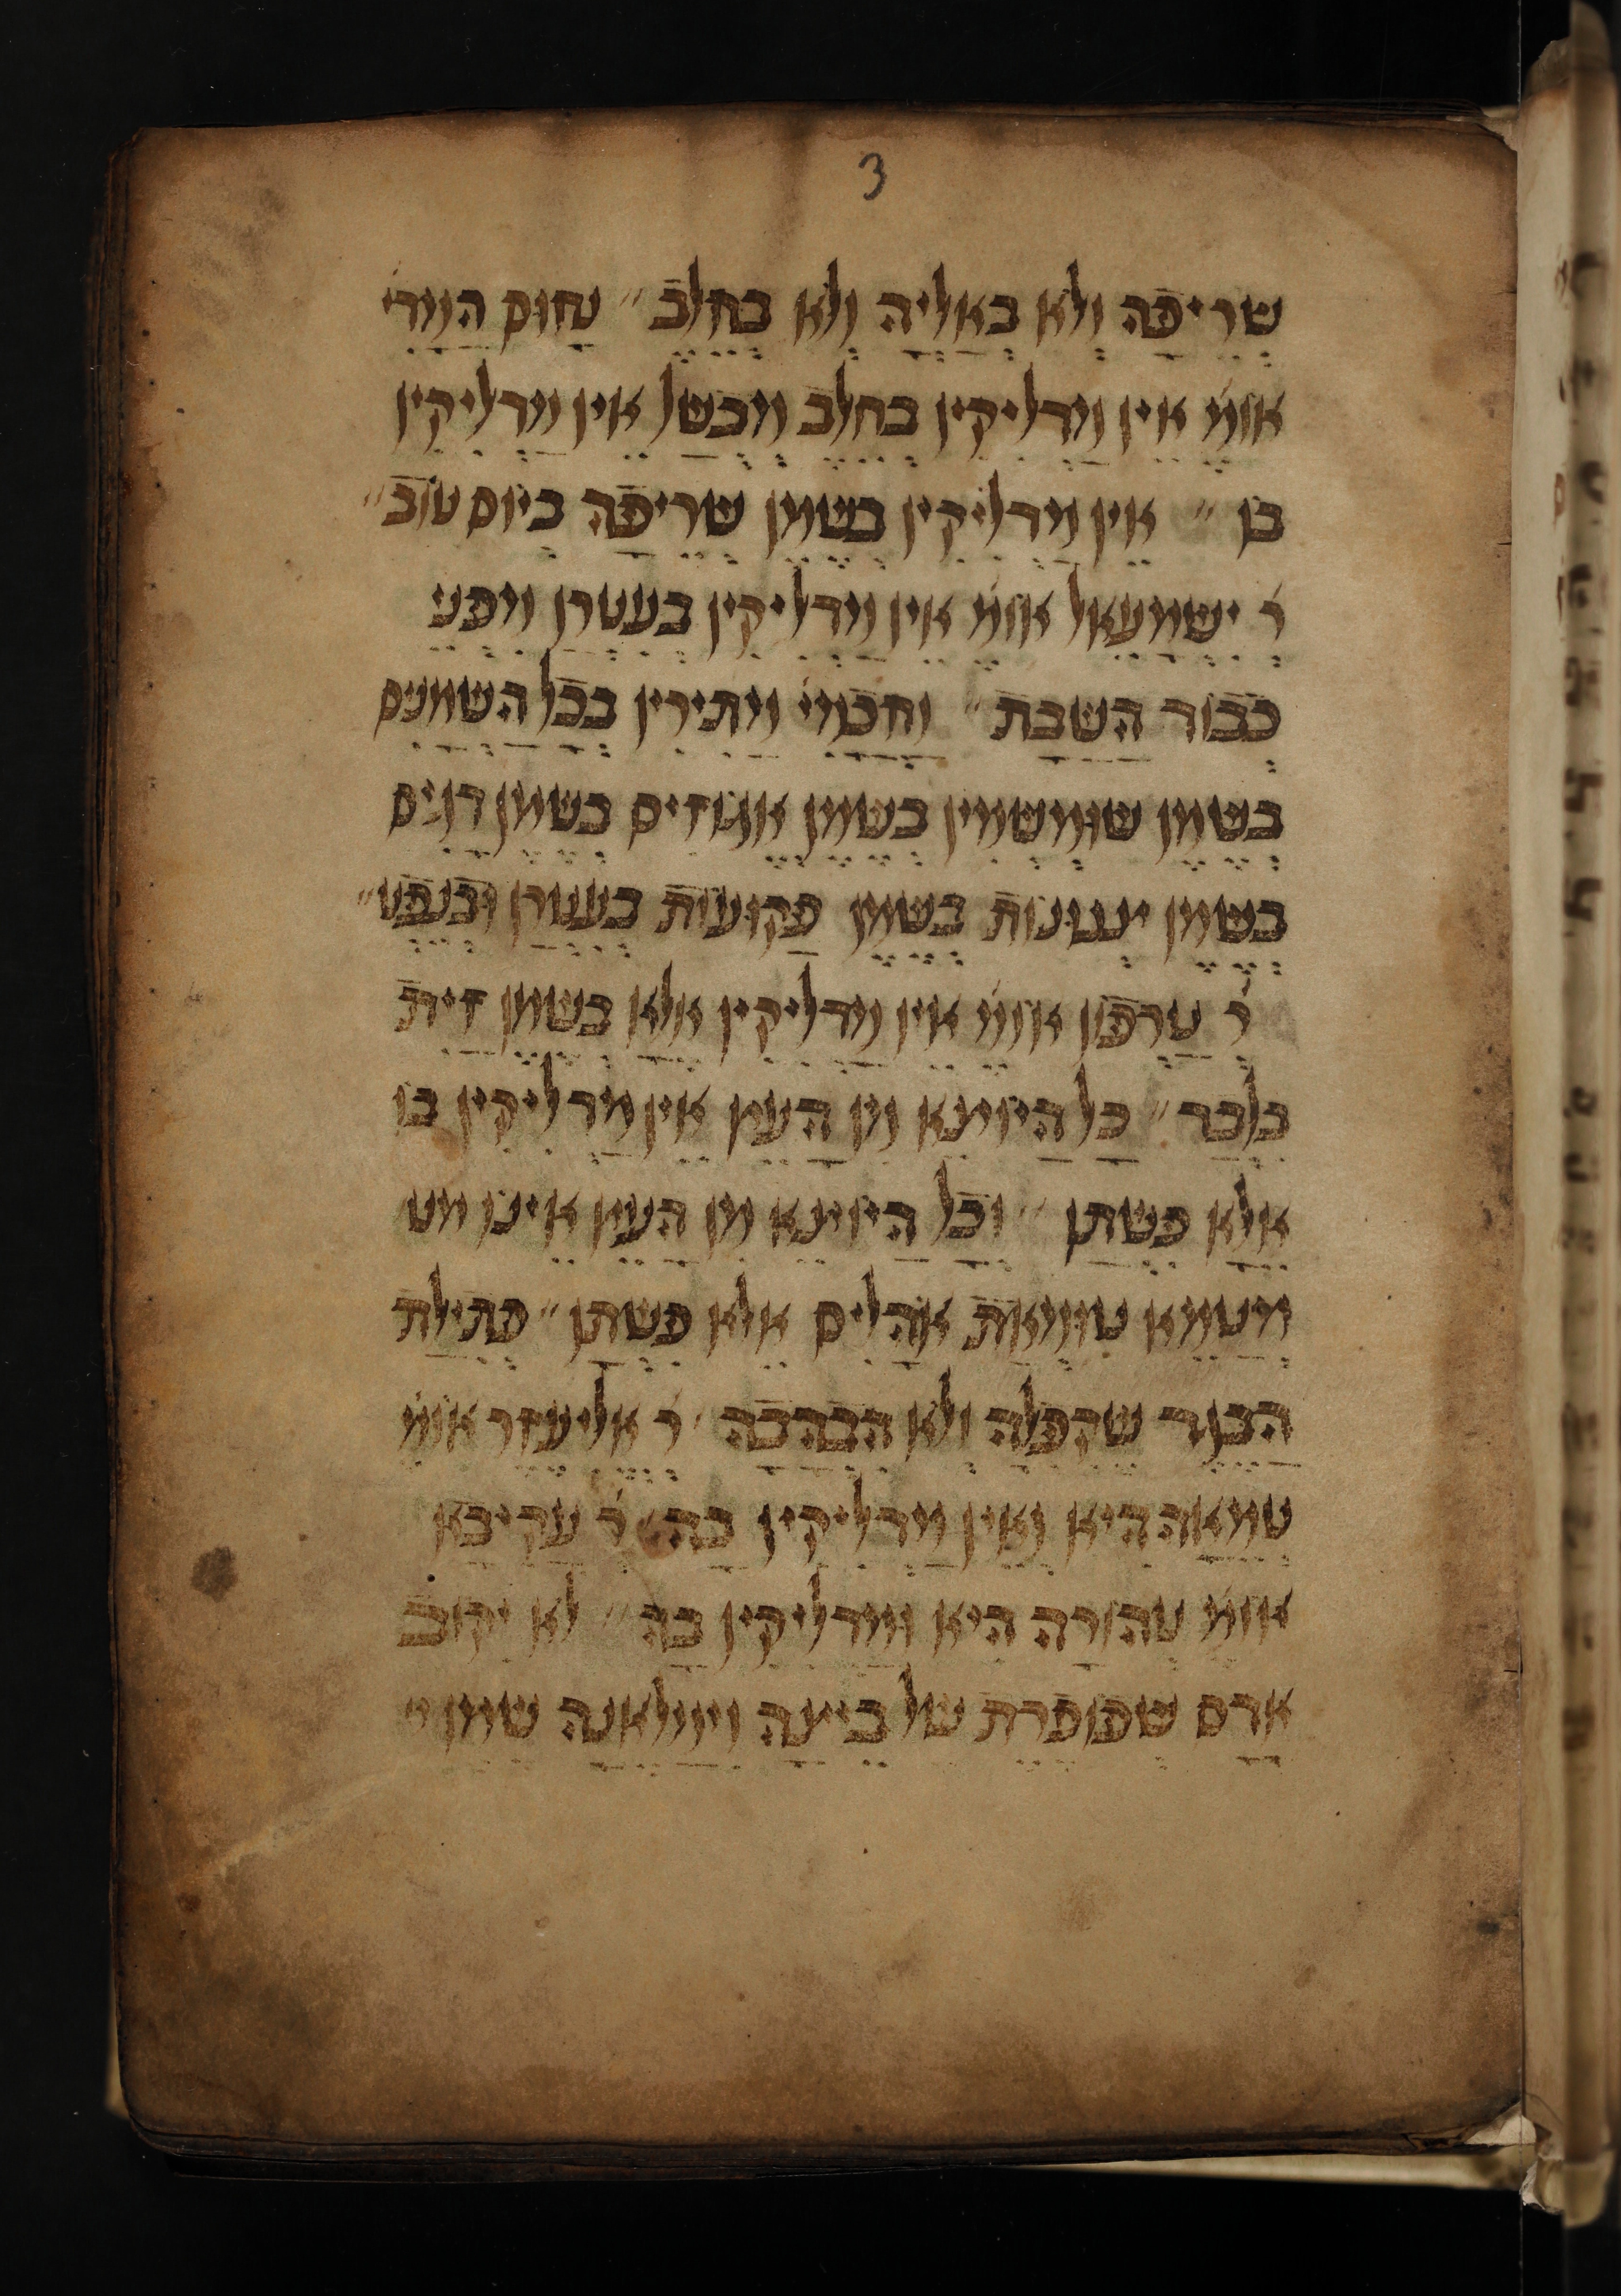 3
שריפה ולא באליה ולא בחלב״ נחום המדי
אומ׳ אין מדליקין בחלב מבשל אין מדליקין
בו״ אין מדליקין בשמן שריפה ביום טוב״
ר׳ ישמעאל אומ׳ אין מדליקין בעטרן מפני
כבוד השבת״ וחכמי׳ מתירין בכל השמנים
בשמן שומשמין בשמן אגוזים בשמן דגים
בשמן צנונות בשמן פקועות בעטרן ובנפט״
ר׳ טרפון אומ׳ אין מדליקין אלא בשמן זית
בלבד״ כל היוצא מן העץ אין מדליקין בו
אלא פשתן״ וכל היוצא מן העץ אינו מט
מיטמא טומאת אהלים אלא פשתן״ פתילת
הבגד שקפלה ולא הבהבה׳ ר׳ אליעזר אומ׳
טמאה היא ואין מדליקין בה׳ ר׳ עקיבא
אומ׳ טהורה היא ומדליקין בה״ לא יקוב
אדם שפופרת של ביצה וימלאנה שמן